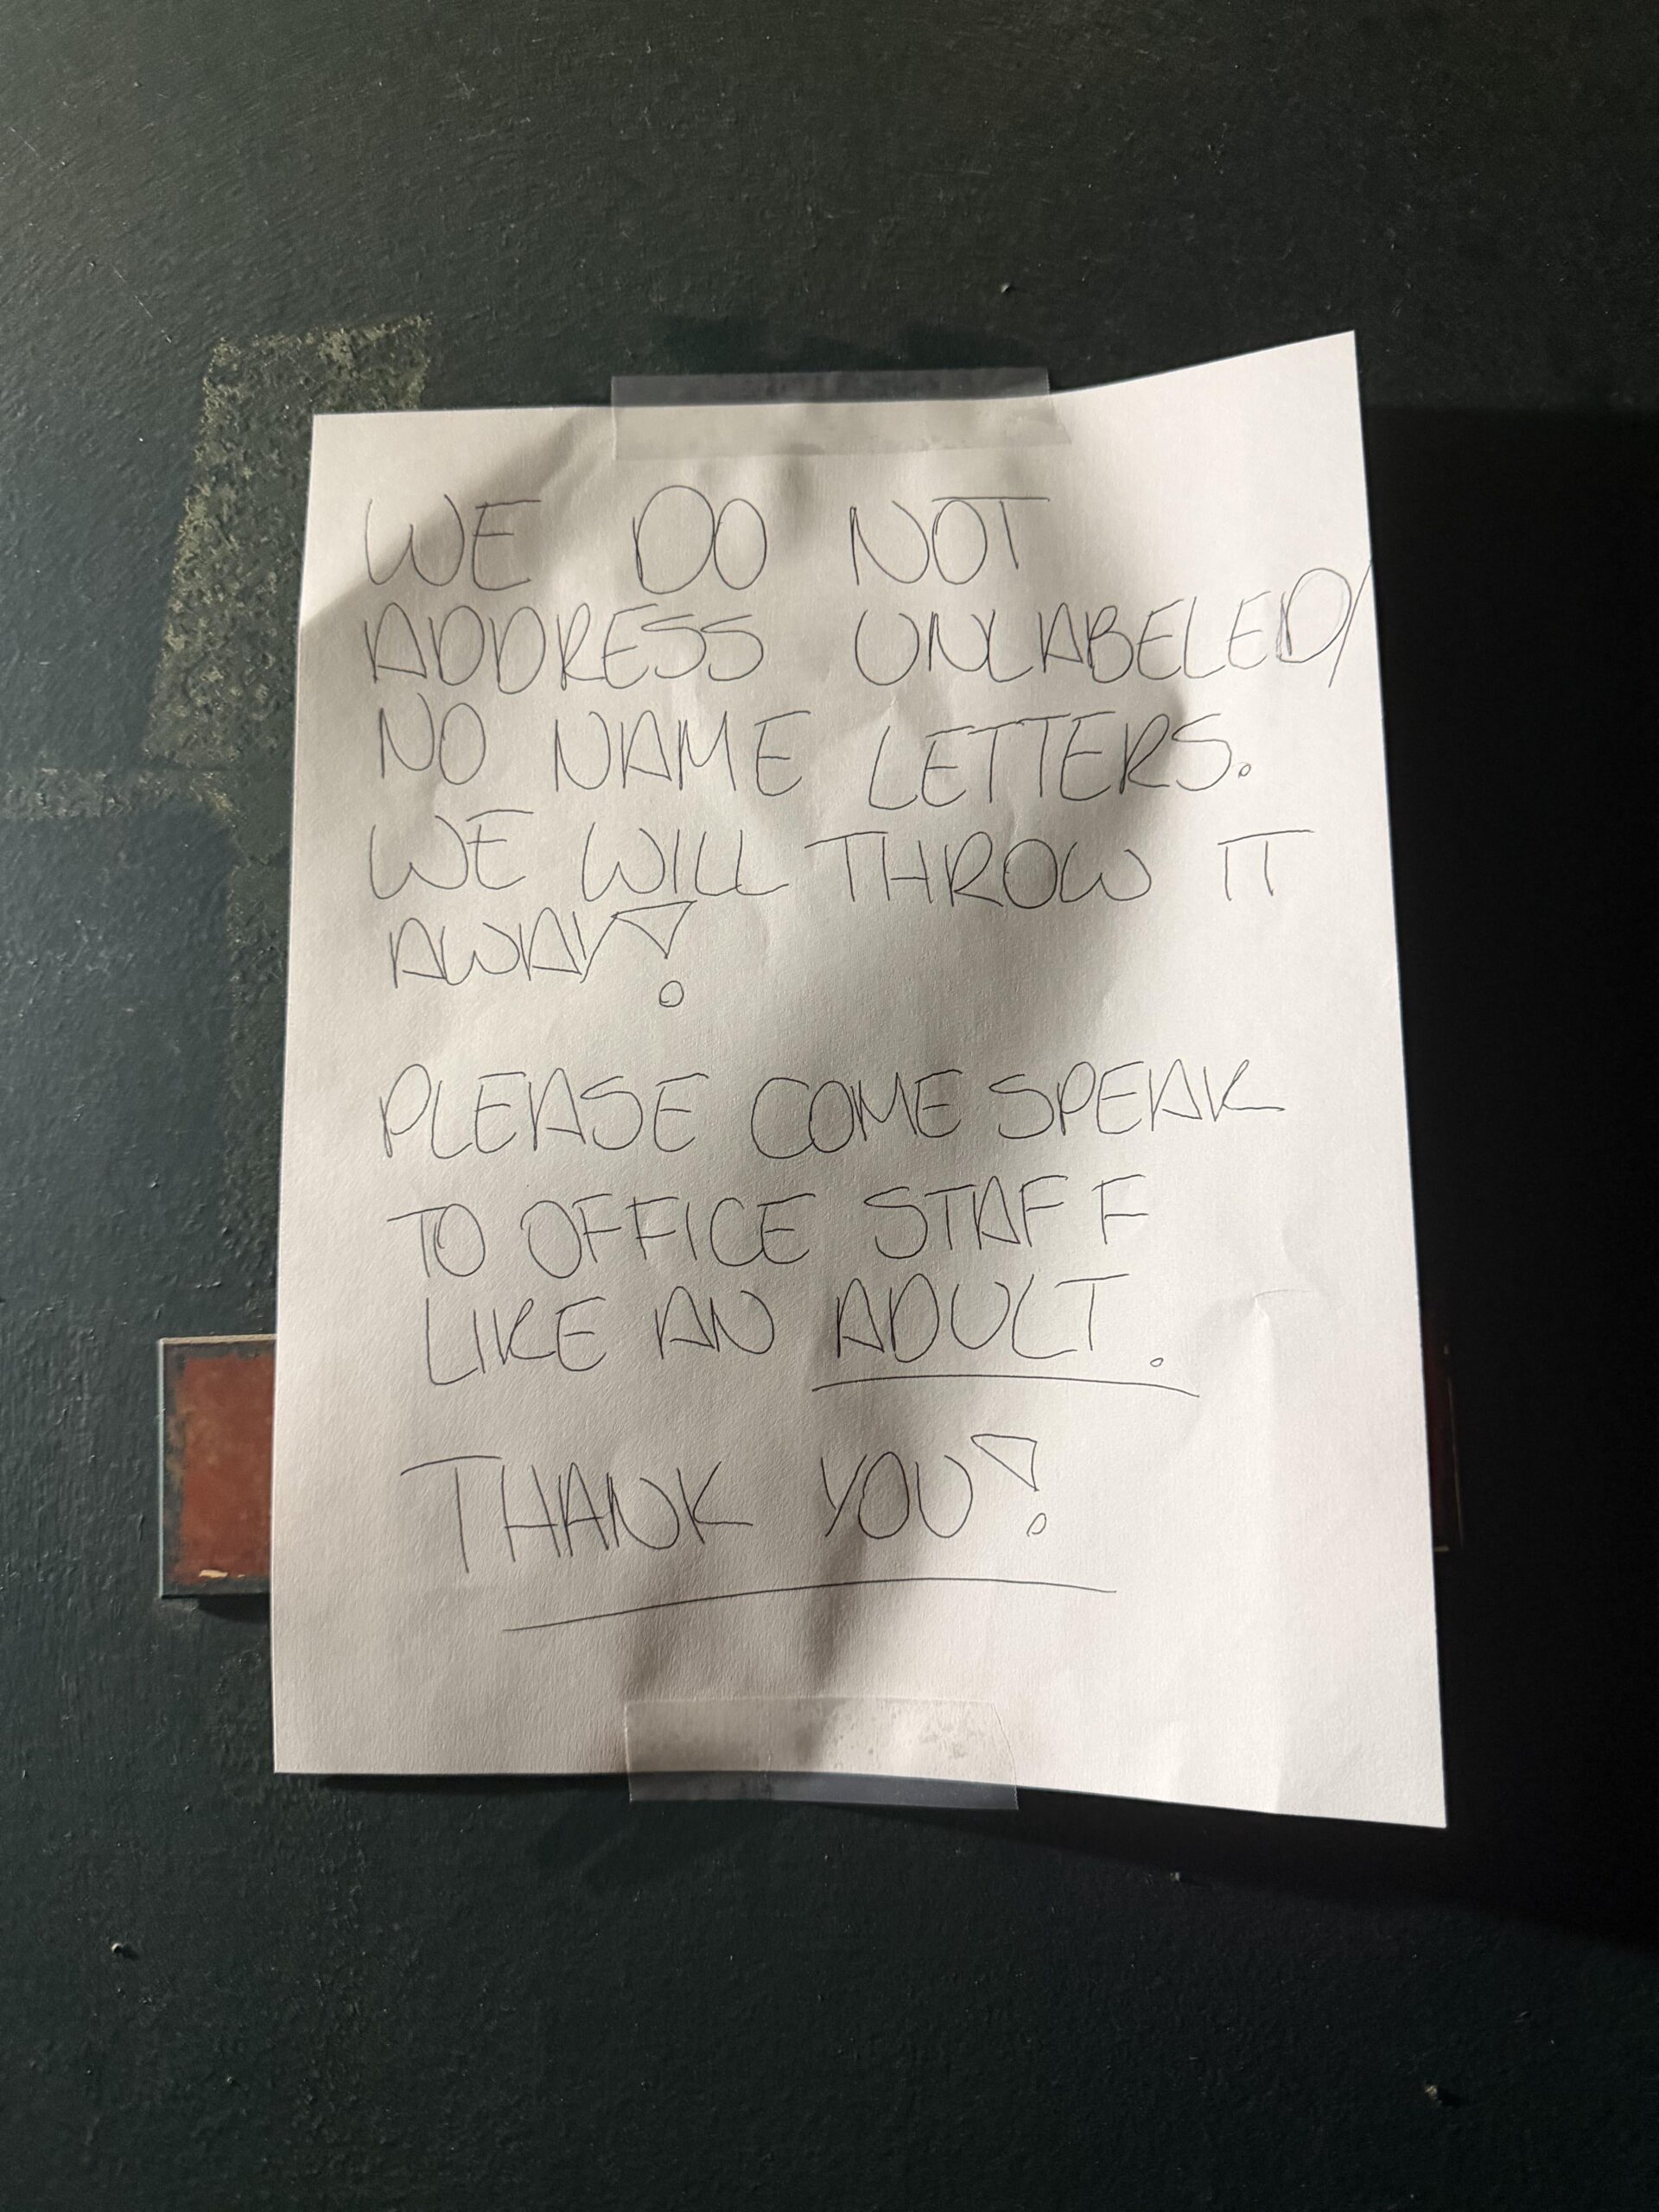 WE DO NOT
ADDRESS UNLABELED/
NO NAME LETTERS.
WE WILL THROW IT
AWAY!
PLEASE COME SPEAK
TO OFFICE STAFF
LIKE AN ADULT.
THANK YOU!